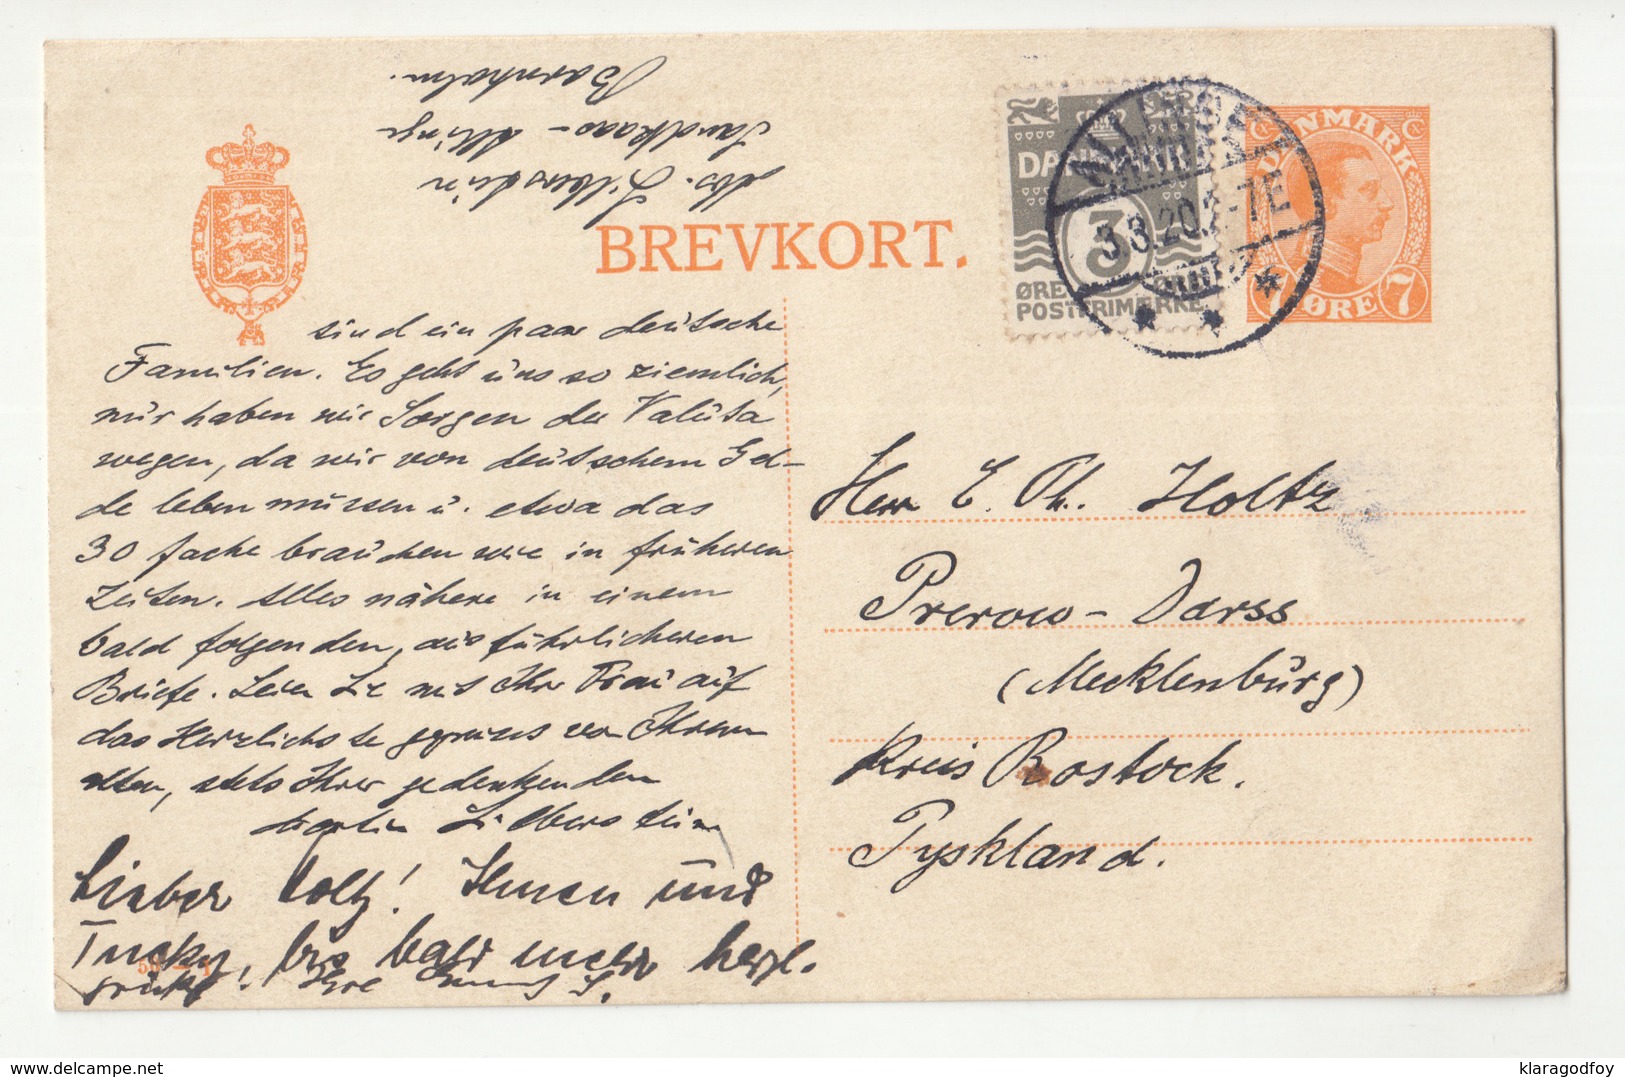 Abs. Silberstein
Sandkaas - Allinge
Bornholm.
BREVKORT.
DANMARK
3
ØRE
POSTFRIMÆRKE
ALLINGE
3.3.20. 7E
DANMARK
7 ØRE 7
sind ein paar deutsche
Familien. Es geht uns so ziemlich,
nur haben wir Sorgen der Valuta
wegen, da wir von deutschem Gel-
de leben müssen u. etwa das
30 fache brauchen wie in früheren
Zeiten. Alles nähere in einem
bald folgenden, ausführlicheren
Briefe. Seien Sie mit Ihrer Frau auf
das Herzlichste gegrüsst von Ihrem
alten, stets Ihrer gedenkenden
Silberstein
Lieber Holtz! Ihnen und
Tucky, bis bald herzl.
Grüße! Ihre S.
Herr E. Th. Holtz
Prerow - Darss
(Mecklenburg)
Kreis Rostock.
Tyskland.
delcampe.net
klaragodfoy